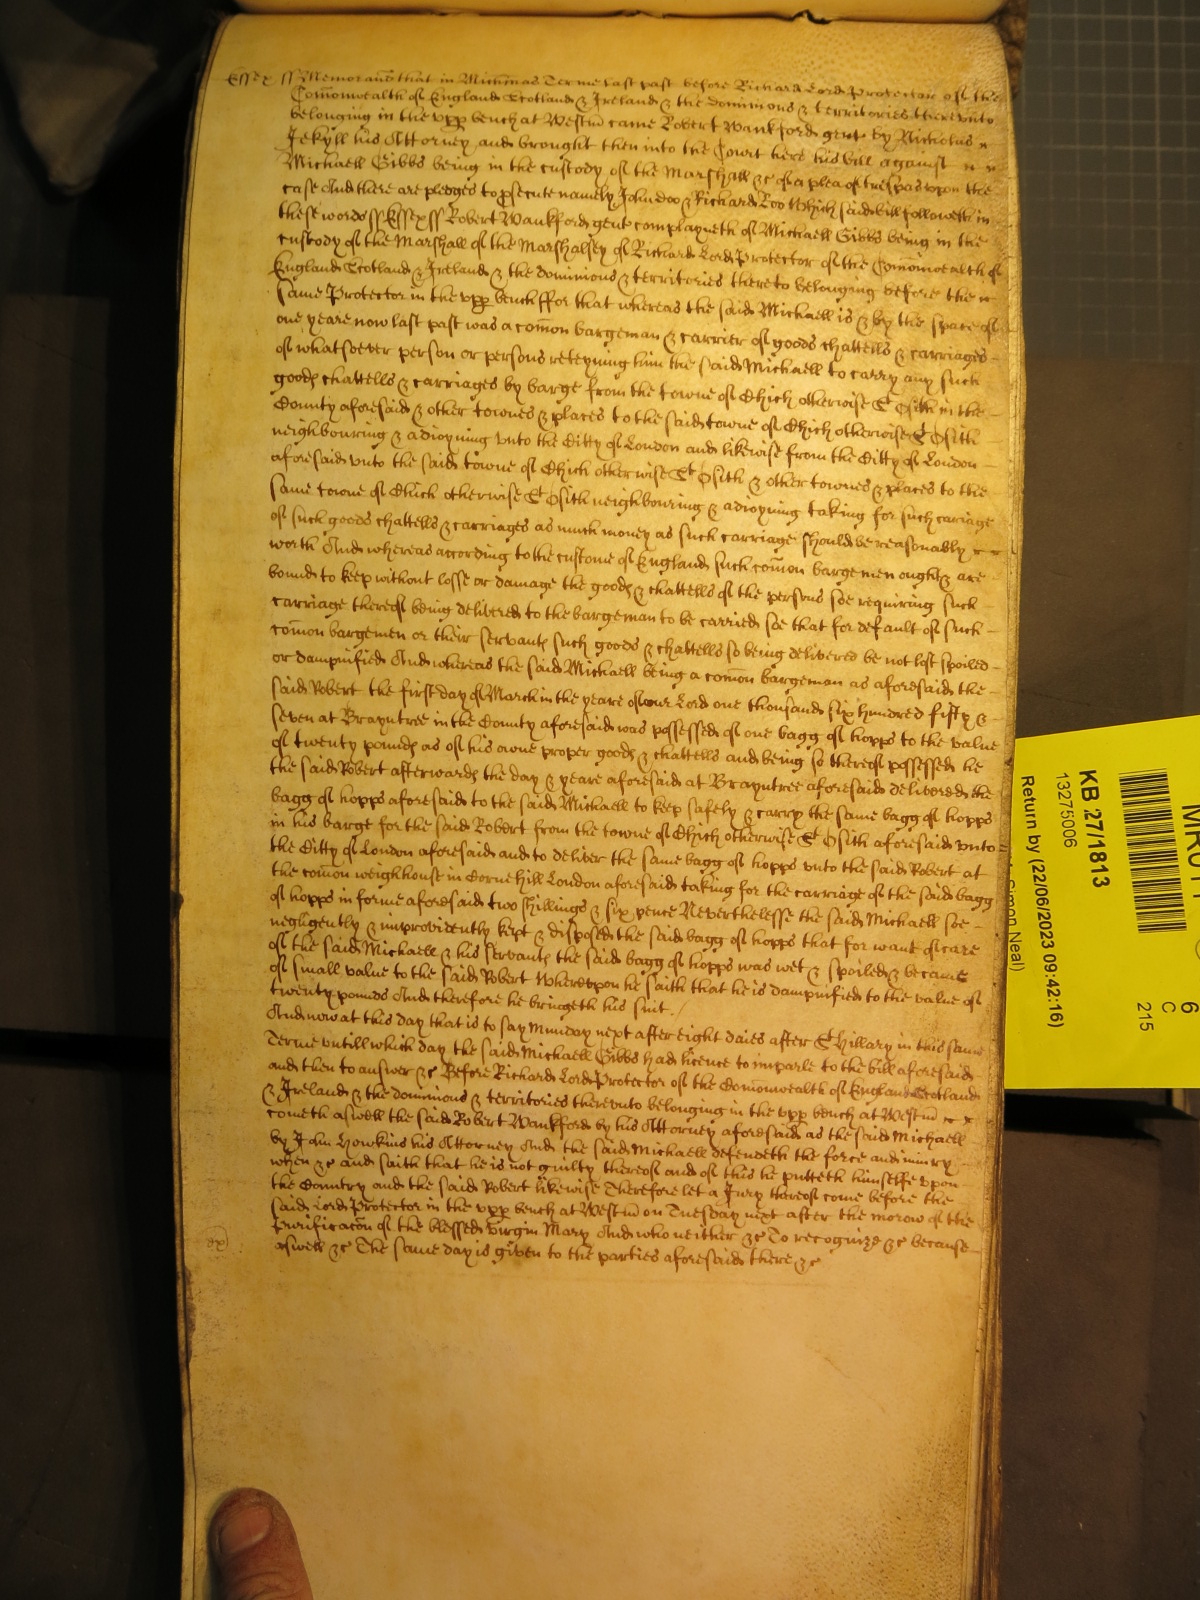 Essex ss Memorand that in Michmas Terme last past before Richard Lord Protector of the
Comonwealth of England Scotland & Ireland & the dominions & territories therevnto
belonging in the vpp bench at Westm came Robert Wankford gent by Nicholas
Jekyll his Attorney and brought then into the Court here his bill against
Michaell Gibbs being in the custody of the Marshall &c of a plea of trespas vpon the
case And there are pledges to psecute namely John Doo & Richard Roo Which said bill followeth in
these words ss Essex ss Robert Wankford gent complayneth of Michaell Gibbs being in the
custody of the Marshall of the Marshalsey of Richard Lord Protector of the Comonwealth of
England Scotland & Ireland & the dominions & territories thereto belonging before the
same Protector in the vpp bench ffor that whereas the said Michaell is & by the space of
one yeare now last past was a comon bargeman & carrier of goods chattells & carriages
of whatsoever person or persons reteyning him the said Michaell to carry any such
goods chattells & carriages by barge from the towne of Chich otherwise St Osith in the
County aforesaid & other townes & places to the said towne of Chich otherwise St Osith
neighbouring & adioyning vnto the Citty of London and likewise from the Citty of London
aforesaid vnto the said towne of Chich otherwise St Osith & other townes & places to the
same towne of Chich otherwise St Osith neighbouring & adioyning taking for such cariage
of such goods chattells & carriages as much money as such carriage should be reasonably
worth And whereas according to the custome of England such comon bargemen ought & are
bound to keep without losse or damage the goods & chattells of the persons soe requiring such
carriage thereof being delivered to the bargeman to be carried soe that for default of such
comon bargemen or their servants such goods & chattells so being delivered be not lost spoiled
or dampnified And whereas the said Michaell being a comon bargeman as aforesaid the
said Robert the first day of March in the yeare of our Lord one thousand six hundred fifty &
seven at Brayntree in the County aforesaid was possessed of one bagg of hopps to the value
of twenty pounds as of his owne proper goods & chattells and being so thereof possessed he
the said Robert afterwards the day & yeare aforesaid at Brayntree aforesaid delivered the
bagg of hopps aforesaid to the said Michaell to keep safely & carry the same bagg of hopps
in his barge for the said Robert from the towne of Chich otherwise St Osith aforesaid vnto
the Citty of London aforesaid and to deliver the same bagg of hopps vnto the said Robert at
the comon weighhouse in Cornehill London aforesaid taking for the carriage of the said bagg
of hopps in forme aforesaid two shillings & six pence Neverthelesse the said Michaell soe
negligently & improvidently kept & disposed the said bagg of hopps that for want of care
of the said Michaell & his servants the said bagg of hopps was wet & spoiled & became
of small value to the said Robert Wherevpon he saith that he is dampnified to the value of
twenty pounds And therefore he bringeth his suit
And now at this day that is to say Munday next after eight daies after St Hillary in this same
Terme vntill which day the said Michaell Gibbs had licence to imparle to the bill aforesaid
and then to answer &c Before Richard Lord Protector of the Comonwealth of England Scotland
& Ireland & the dominions & territories therevnto belonging in the vpp bench at Westm
cometh aswell the said Robert Wankford by his Attorney aforesaid as the said Michaell
by John Howkins his Attorney And the said Michaell defendeth the force and iniury
when &c and saith that he is not guilty thereof and of this he putteth himselfe vpon
the Country and the said Robert likewise Therefore let a Jury thereof come before the
said Lord Protector in the vpp bench at Westm on Tuesday next after the morow of the
Purificacon of the blessed Virgin Mary And who neither &c To recognize &c because
aswell &c The same day is given to the parties aforesaid there &c
KB 27/1813
13275006
Return by (22/06/2023 09:42:16)
Simon Neal)
6
C
215